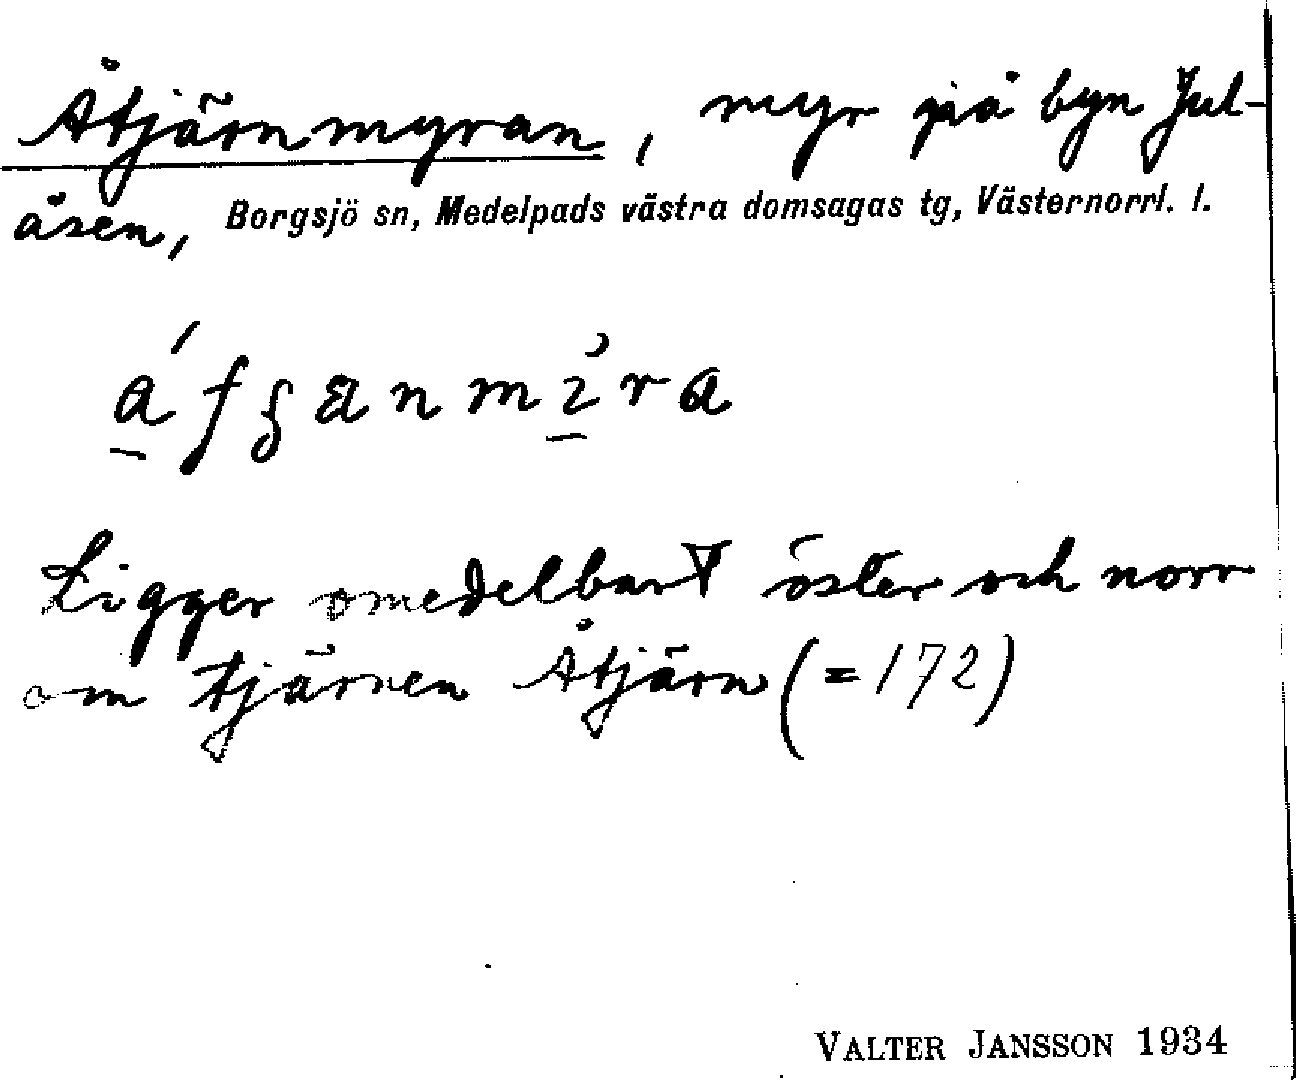 Åtjärnmyran, myr på byn Jul-
åsen, Borgsjö sn, Medelpads västra domsagas tg, Västernorrl. l.
Ligger omedelbart öster och norr
om tjärnen Åtjärn (= 172)
VALTER JANSSON 1934